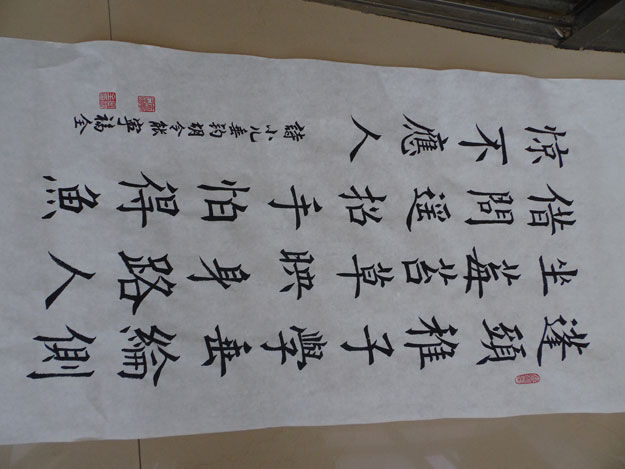 蓬頭稚子學垂綸側
坐莓苔草映身路人
借問遥招手怕得魚
惊不應人
小儿垂钓胡令能寧福全